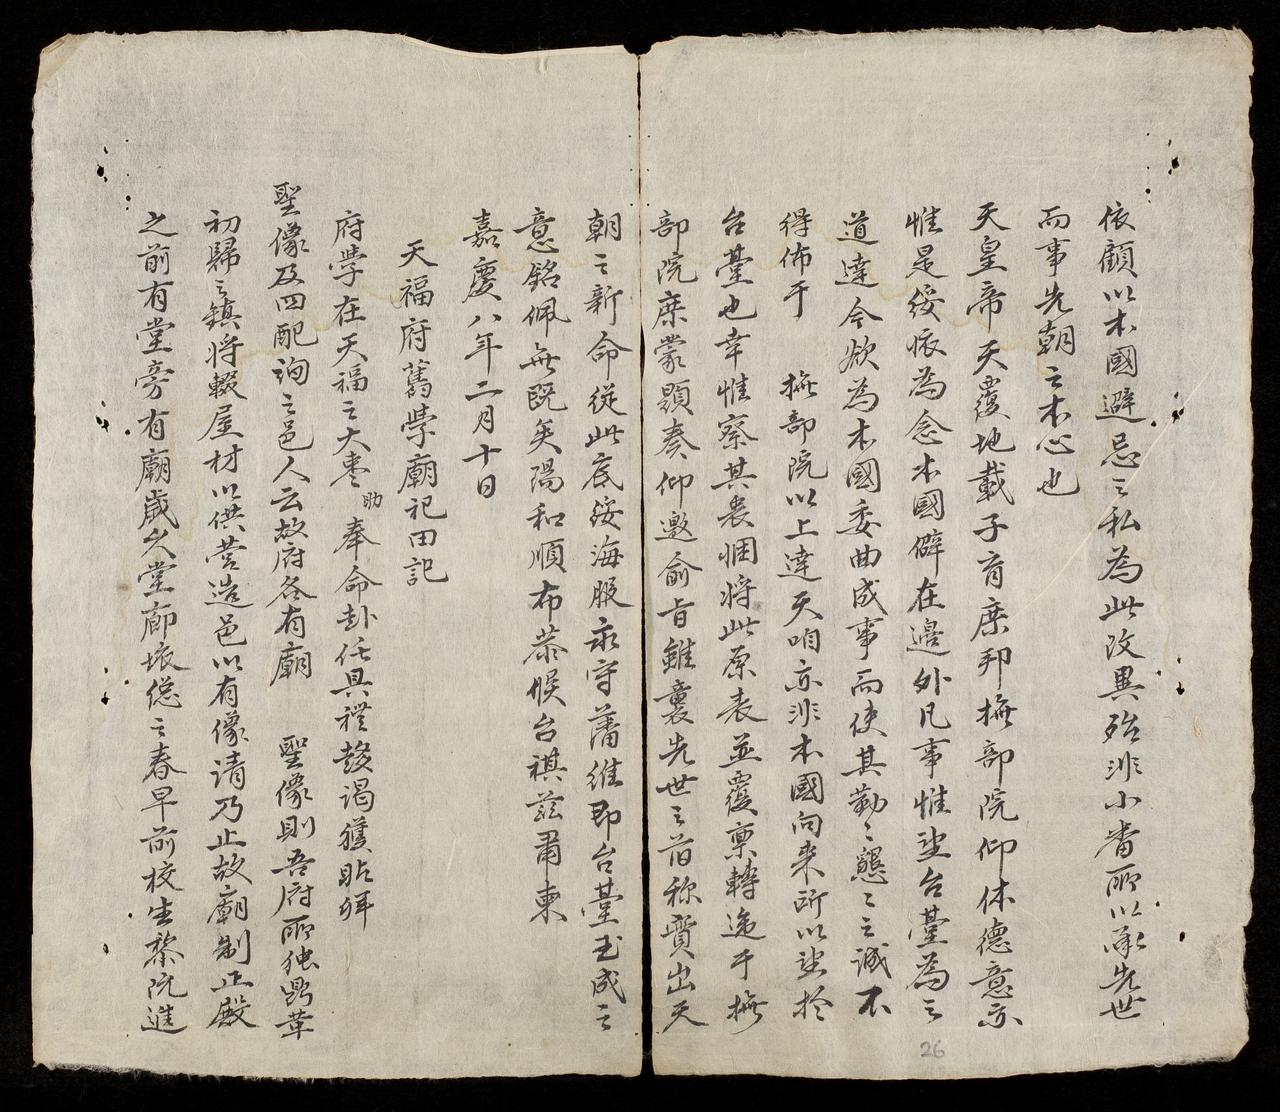 依顧以本國避忌〻私為此改異殆非小番所以承先世
而事先朝之本心也
天皇帝天覆地載子育庶邦撫部院仰体德意亦
惟是綏懷為念本國僻在邊外凡事惟望台臺為之
道達今欲為本國委曲成事而使其勤〻懇〻之誠不
得佈于 撫部院以上達天咱亦非本國向来所以望於
台臺也幸惟察其衷悃将此原表並覆稟轉递于撫
部院庶蒙題奏仰邀俞旨雖襄先世之旧称實出天
朝之新命從此底綏海服永守藩維即台臺玉成之
意銘佩無既矣陽和順布恭候台祺茲肅柬
嘉慶八年二月十日
天福府舊學廟祀田記
府學在天福之大棗助奉命赴任具禮𢭏谒獲貼拜
聖像及四配詢之邑人云故府各有廟 聖像則吾府所独鼎革
初歸之鎮将輟屋材以供营造邑以有像请乃止故廟制正殿
之前有堂旁有廟歲久堂廊圮偬之春早前校生黎阮進
26